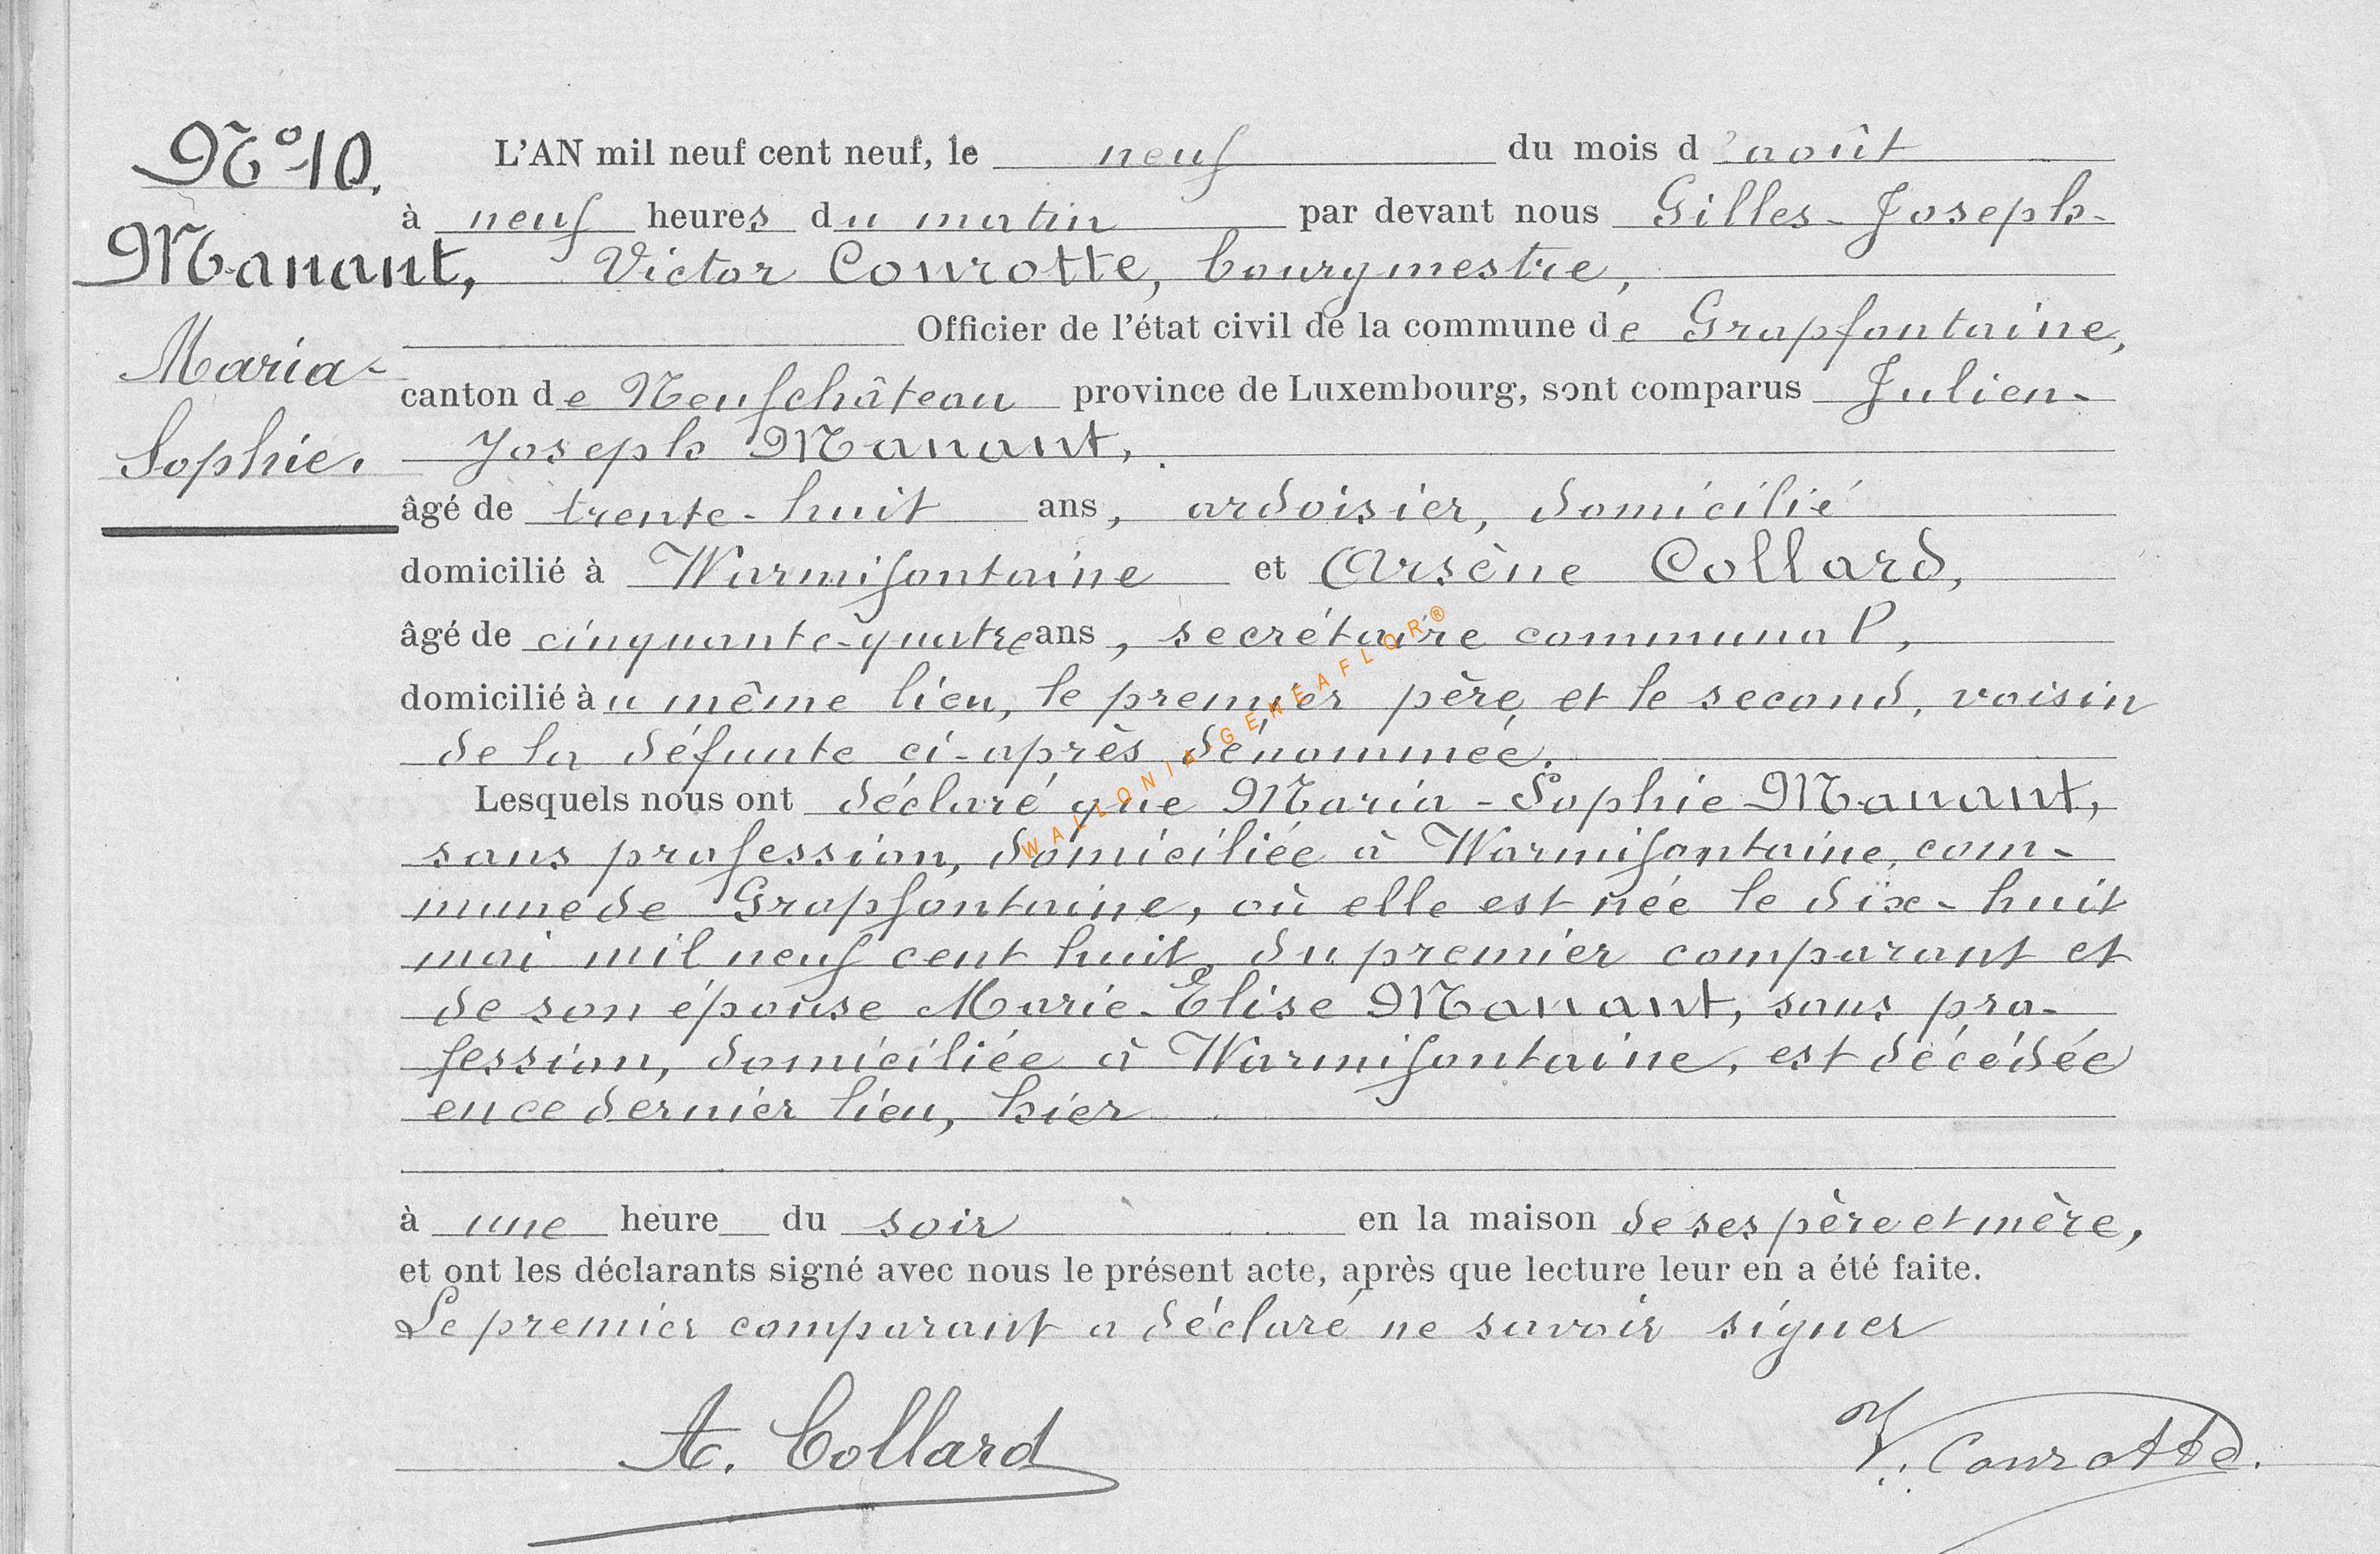 N° 10.
Manant,
Maria-
Sophie.
L'AN mil neuf cent neuf, le neuf du mois d'août
à neuf heures du matin par devant nous Gilles-Joseph-
Victor Conrotte, bourgmestre,
Officier de l'état civil de la commune de Grapfontaine,
canton de Neufchâteau province de Luxembourg, sont comparus Julien-
Joseph Manant,
âgé de trente-huit ans, ardoisier, domicilié
domicilié à Warmifontaine et Arsène Collard,
âgé de cinquante-quatre ans, secrétaire communal,
domicilié au même lieu, le premier père, et le second, voisin
de la défunte ci-après dénommée.
Lesquels nous ont déclaré que Maria-Sophie Manant,
sans profession, domiciliée à Warmifontaine, com-
mune de Grapfontaine, où elle est née le dix-huit
mai mil neuf cent huit, du premier comparant et
de son épouse Marie-Elise Manant, sans pro-
fession, domiciliée à Warmifontaine, est décédée
en ce dernier lieu, hier
à une heure du soir en la maison de ses père et mère,
et ont les déclarants signé avec nous le présent acte, après que lecture leur en a été faite.
Le premier comparant a déclaré ne savoir signer
A. Collard
V. Conrotte.
WALLONIA-GENEAFLOR®